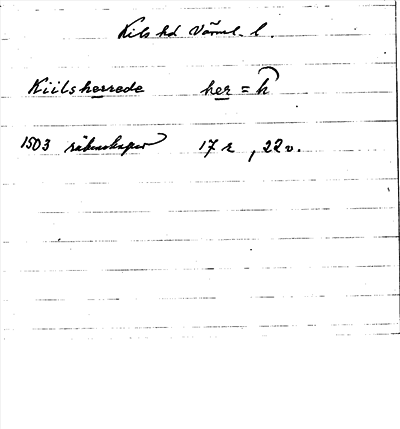 Kils hd Värml. l.
Kiilsherrede her = h
1503 räkenskaper 17 r, 22 v.